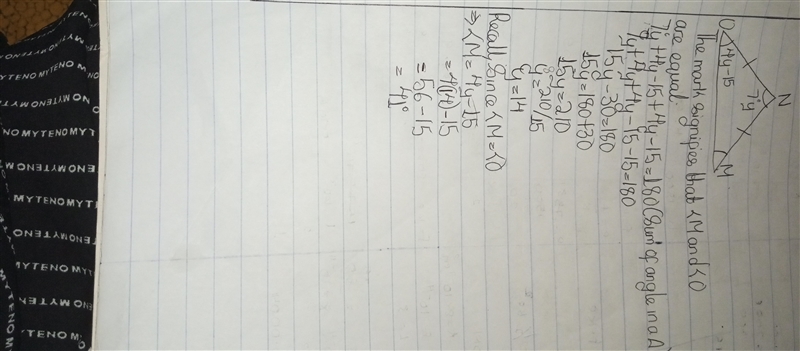 N
7y
O 4y-15
M
The mark signifies that <M and <O
are equal
7y+4y-15+4y-15=180(Sum of angle in a Δ)
7y+4y+4y-15-15=180
15y-30=180
15y=180+30
15y=210
y=210/15
y=14
Recall, Since <M=<O
⇒ <M=4y-15
=4(14)-15
=56-15
=41°
MYTENO MYTENO MYTENO